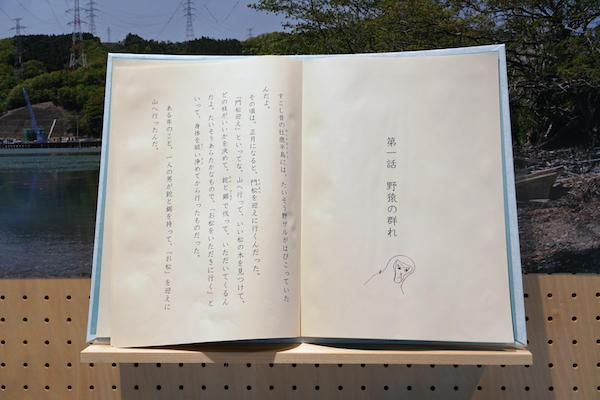 第一話　野猿の群れ
すこし昔の牡鹿半島には、たいそう野ザルがはびこっていた
んだよ。
その頃は、正月になると、門松を迎えに行くんだった。
「門松迎え」といってな、山へ行って、いい松の木を見つけて、
どの枝がいいかを決めて、鉈と鋸で伐って、いただいてくるん
だよ。たいそうあらたかなもので、「お松をいただきに行く」と
いって、身体を祓い浄めてから行ったものだった。
ある年のこと、一人の男が鉈と鋸を持って、「お松」を迎えに
山へ行ったんだ。